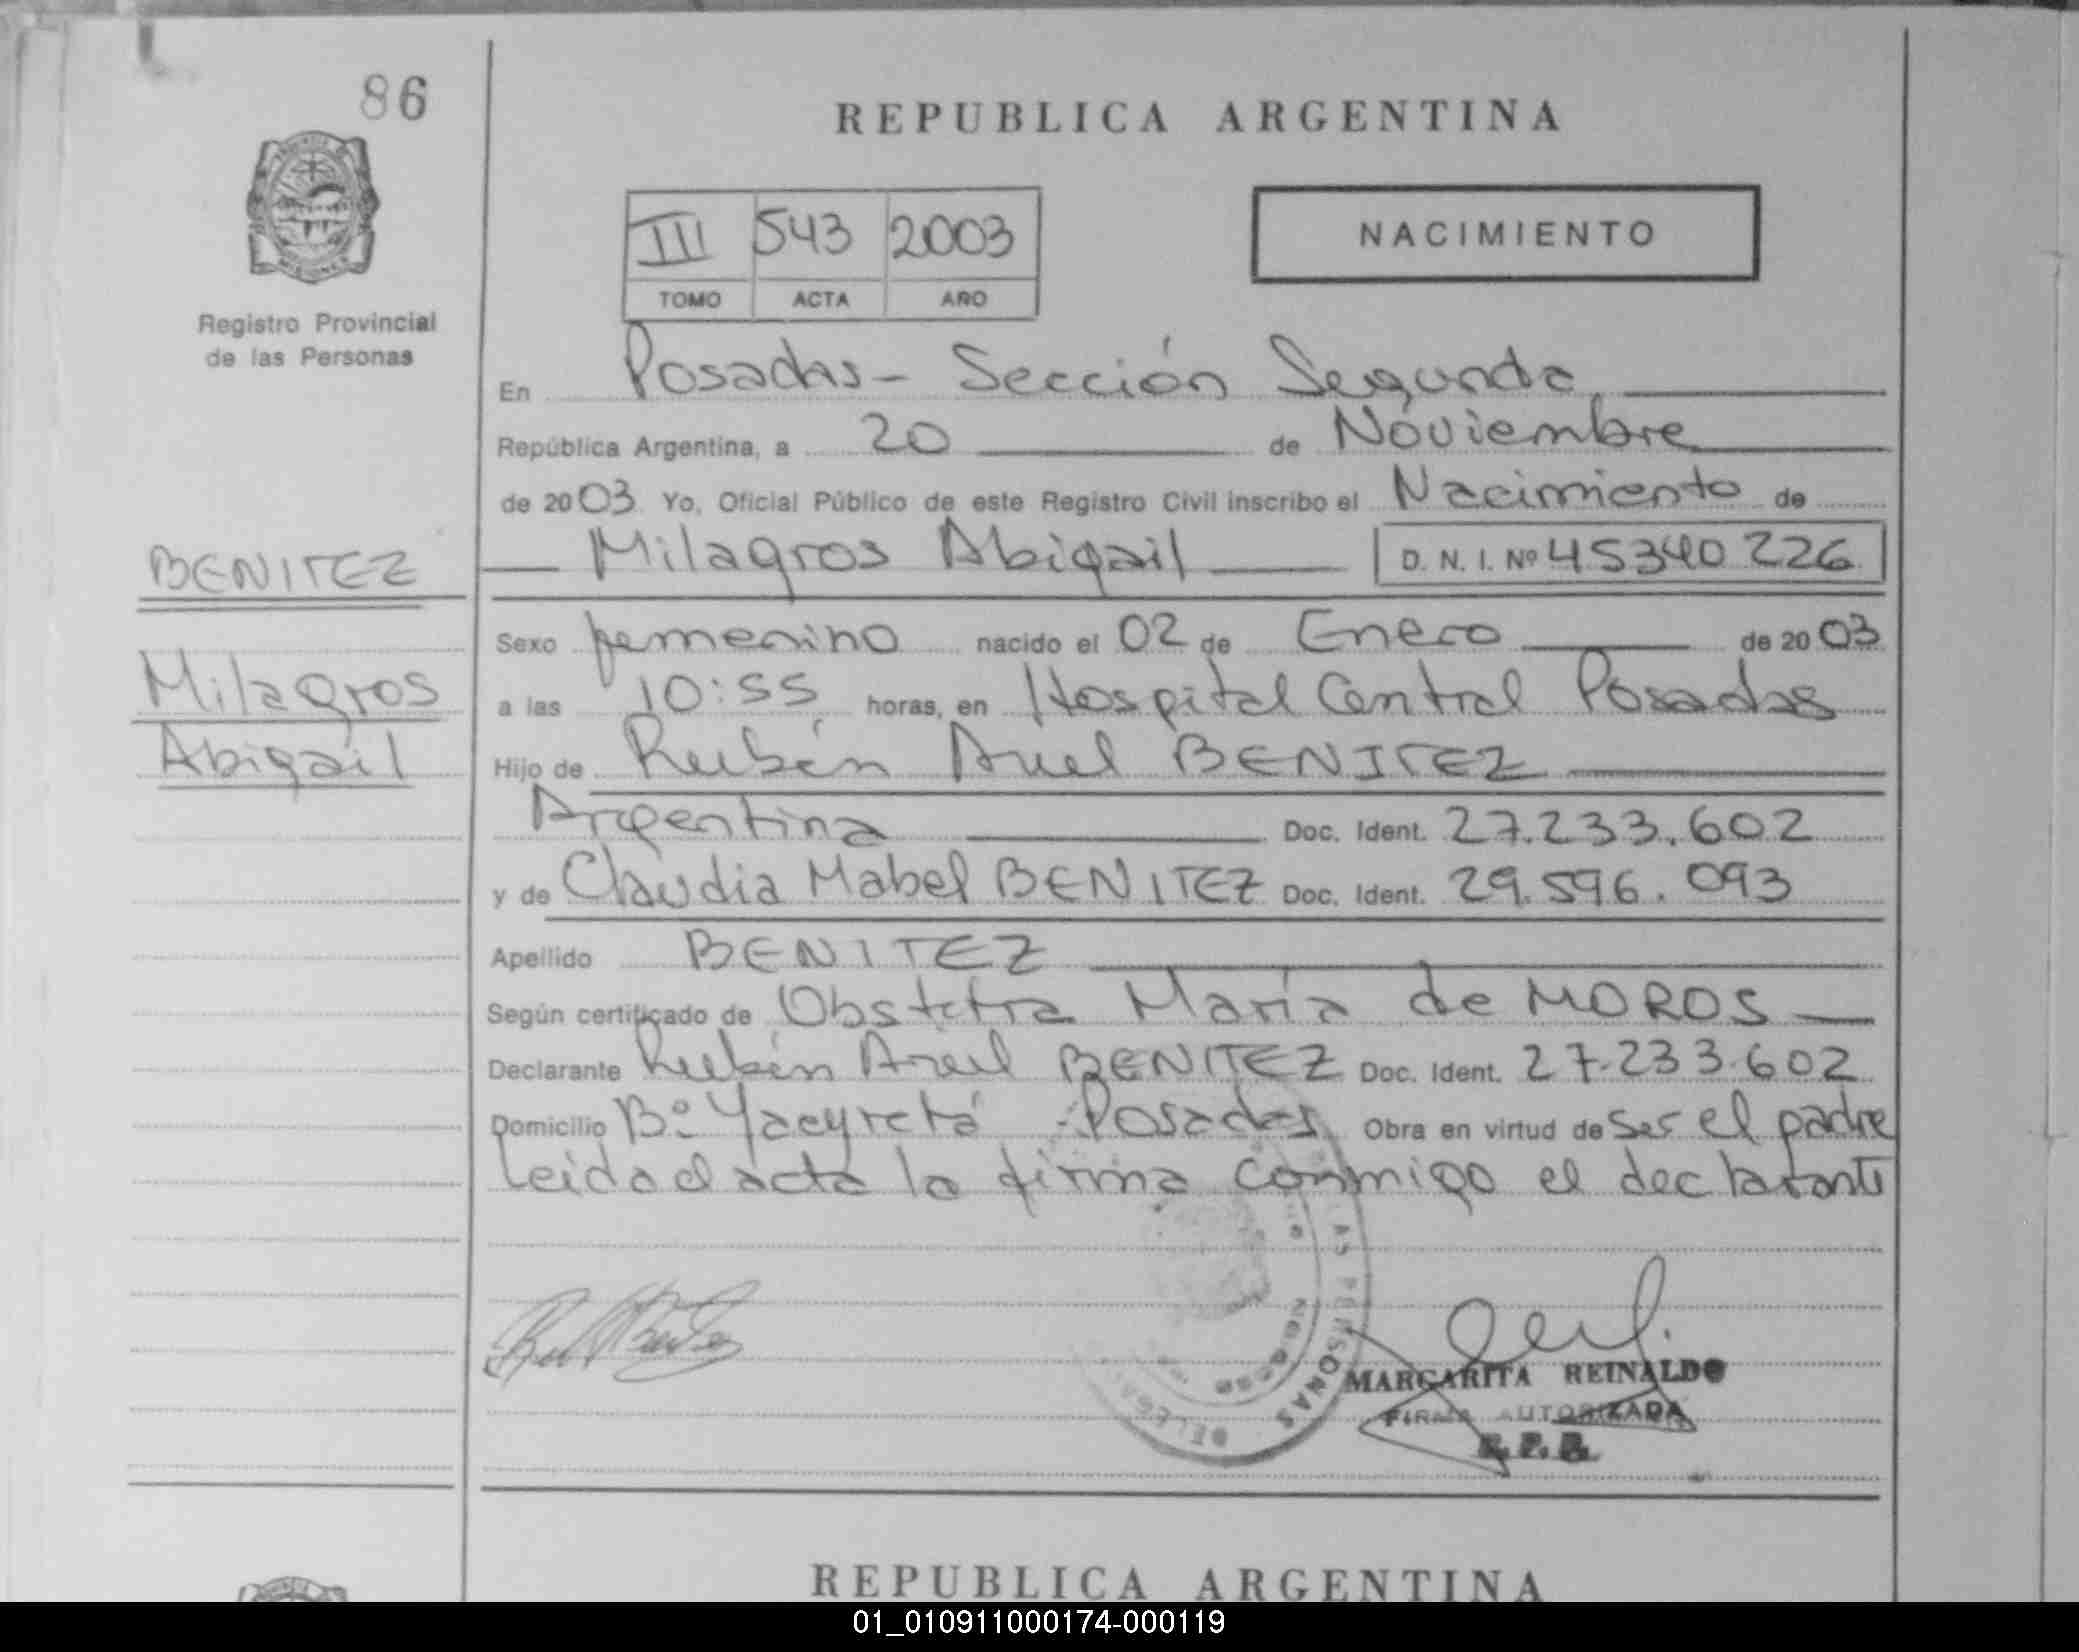 86
REPUBLICA ARGENTINA
III 543 2003
TOMO ACTA AÑO
NACIMIENTO
Registro Provincial
de las Personas
En Posadas - Sección Segunda
República Argentina, a 20 de Noviembre
de 2003 Yo, Oficial Público de este Registro Civil inscribo el Nacimiento de
Milagros Abigail D. N. I. Nº 45340226
BENITEZ
Milagros
Abigail
Sexo femenino nacido el 02 de Enero de 2003
a las 10:55 horas, en Hospital Central Posadas
Hijo de Rubén Ariel BENITEZ
Argentina Doc. Ident. 27.233.602
y de Claudia Mabel BENITEZ Doc. Ident. 29.596.093
Apellido BENITEZ
Según certificado de Obstetra María de MOROS
Declarante Rubén Ariel BENITEZ Doc. Ident. 27.233.602
Domicilio Bº Yacyretá - Posadas Obra en virtud de ser el padre
Leida el acta la firma conmigo el declarante
LAS PERSONAS
MARGARITA REINALDO
FIRMA AUTORIZADA
R.P.P.
REPUBLICA ARGENTINA
01_010911000174-000119